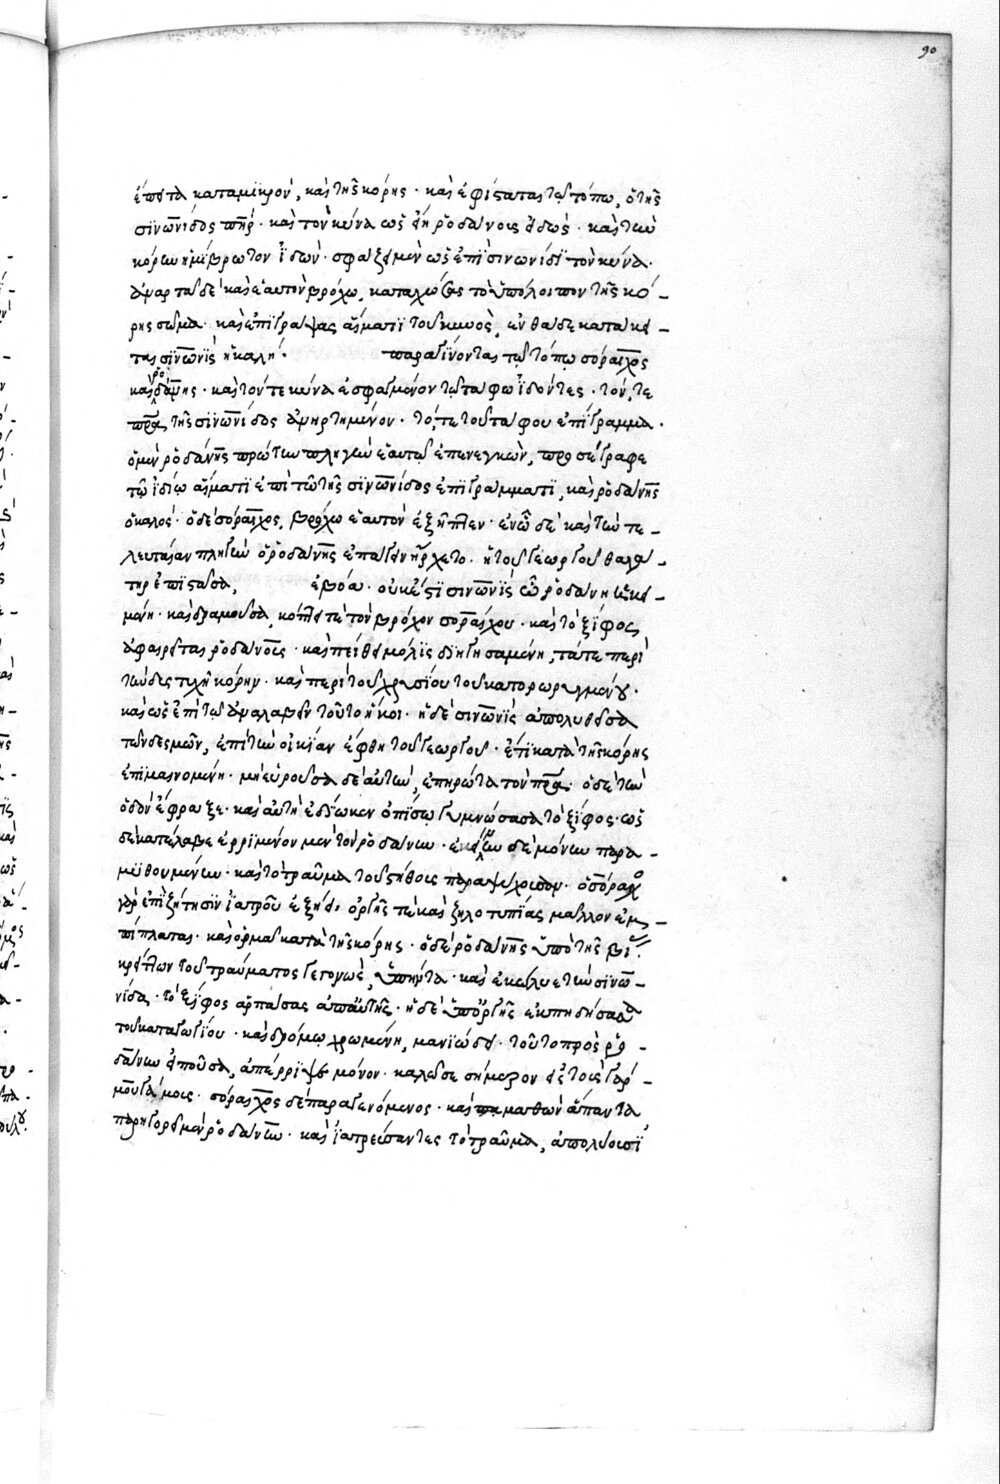 90
ἔπειτα καταμϊκρόν, καὶ τῆς κόρης · καὶ ἐφίσταται τῷ τόπω, ὁ τῆς
σϊνωνίδος πῆρ · καὶ τὸν κύνα ὡς εἴη ῥοδάνους εἰδώς · καὶ τὴν
κόρην ἡμίβρωτον ἰδών · σφάξει μὲν ὡς ἐπὶ σινωνίδϊ τὸν κύνα ·
ἀναρτᾶ δὲ καὶ ἑαυτὸν βρόχω, καταχώσας τὸ ὑπόλοιπον τῆς κό-
ρης σῶμα · καὶ ἐπιγράψας αἵματϊ τοῦ κυνὸς, ἐνθάδε κατάκει-
ται σϊνωνῒς ἡ καλή · παραγίνονται τῷ τόπῳ σόραιχος
καὶ ῥοδάνης · καὶ τόν τε κύνα ἐσφαγμένον τῷ τάφω ἰδόντες · τόν, τε
πρα τῆς σϊνωνίδος ἀνηρτημένον · τό, τε τοῦ τάφου ἐπίγραμμα ·
ὁ μὲν ῥοδάνης πρώτην πληγὴν ἑαυτῷ ἐπενεγκὼν, προσέγραφε
τῷ ἰδίῳ αἵματϊ ἐπὶ τῶ τῆς σϊνωνίδος ἐπιγράμματϊ, καὶ ῥοδάνης
ὁ καλός · ὁ δὲ σόραιχος, βρόχω ἑαυτὸν ἐξῆπτεν · ἐν ᾧ δὲ καὶ τὴν τε-
λευταίαν πληγὴν ὁ ῥοδάνης ἐπάγειν ἤρχετο · ἡ τοῦ γεωργοῦ θυγά-
τηρ ἐπιστᾶσα, ἐβόα · οὐκ ἔστϊ σινωνῒς ὦ ῥοδάνη ἡ κει-
μένη · καὶ δραμοῦσα, κόπτει τε τὸν βρόχον σοραίχου · καὶ τὸ ξίφος
ἀφαιρεῖται ῥοδάνους · καὶ πείθει μόλϊς διηγησαμένη, τά τε περὶ
τὴν δυστυχῆ κόρην · καὶ περὶ τοῦ χρυσίου τοῦ κατορωρυγμένου ·
καὶ ὡς ἐπὶ τῷ ἀναλαβεῖν τοῦτο ἥκοι · ἡ δὲ σινωνῒς ἀπολυθεῖσα
τῶν δεσμῶν, ἐπὶ τὴν οἰκίαν ἔφθη τοῦ γεωργοῦ · ἔτϊ κατὰ τῆς κόρης
ἐπϊμαινομένη · μὴ εὑροῦσα δὲ αὐτὴν, ἐπηρώτα τὸν πρα · ὁ δὲ τὴν
ὁδὸν ἔφραζε · καὶ αὐτὴ ἐδίωκεν ὀπίσω γυμνώσασα τὸ ξίφος · ὡς
δὲ κατέλαβε ἐρριμένον μὲν τὸν ῥοδάνην · ἐκείνην δὲ μόνην παρα-
μϋθουμένην · καὶ τὸ τραῦμα τοῦ στήθους παραψύχουσαν · ὁ σόραιχος
γὰρ ἐπὶ ζήτησιν ϊατροῦ ἐξῄει, ὀργῆς τε καὶ ζηλοτυπίας μᾶλλον ἐμ-
πίπλαται · καὶ ὁρμᾶ κατὰ τῆς κόρης · ὁ δὲ ῥοδάνης ὑπὸ τῆς βί-
κρείττων τοῦ τραύματος γεγονὼς, ὑπήντα · καὶ ἐκώλυε τὴν σϊνω-
νίδα · τὸ ξίφος ἁρπάσας ἀπ' αὐτῆς · ἡ δὲ ὑπ' ὀργῆς ἐκπηδήσασα
τοῦ καταγωγίου · καὶ δρόμῳ χρωμένη, μανϊώδει · τοῦτο πρὸς ῥο-
δάνην εἰποῦσα, ἀπέρριψε μόνον · καλῶ σε σήμερον εἰς τοὺς γαρ-
μου γάμους · σόραιχος δὲ παραγενόμενος · καὶ μαθὼν ἅπαντα
παρηγορεῖ μὲν ῥοδάνην · καὶ ϊατρεύσαντες τὸ τραῦμα, ἀπολύουσϊ